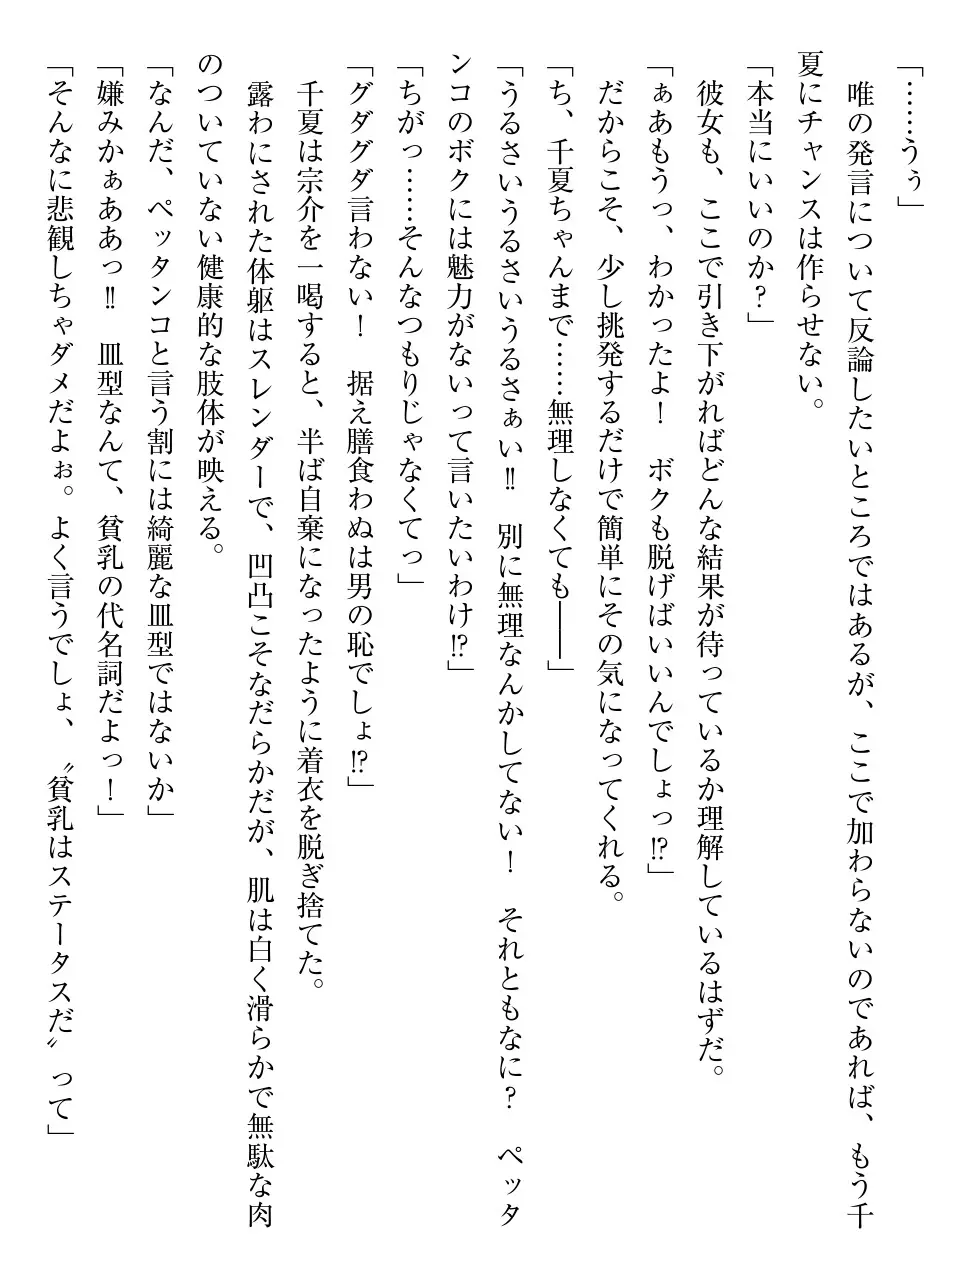 「……うぅ」
　唯の発言について反論したいところではあるが、ここで加わらないのであれば、もう千
夏にチャンスは作らせない。
「本当にいいのか？」
　彼女も、ここで引き下がればどんな結果が待っているか理解しているはずだ。
「ぁあもうっ、わかったよ！　ボクも脱げばいいんでしょっ!?」
　だからこそ、少し挑発するだけで簡単にその気になってくれる。
「ち、千夏ちゃんまで……無理しなくても――」
「うるさいうるさいうるさぁい!!　別に無理なんかしてない！　それともなに？　ペッタ
ンコのボクには魅力がないって言いたいわけ!?」
「ちがっ……そんなつもりじゃなくてっ」
「グダグダ言わない！　据え膳食わぬは男の恥でしょ!?」
　千夏は宗介を一喝すると、半ば自棄になったように着衣を脱ぎ捨てた。
　露わにされた体躯はスレンダーで、凹凸こそなだらかだが、肌は白く滑らかで無駄な肉
のついていない健康的な肢体が映える。
「なんだ、ペッタンコと言う割には綺麗な皿型ではないか」
「嫌みかぁああっ!!　皿型なんて、貧乳の代名詞だよっ！」
「そんなに悲観しちゃダメだよぉ。よく言うでしょ、〝貧乳はステータスだ〟って」